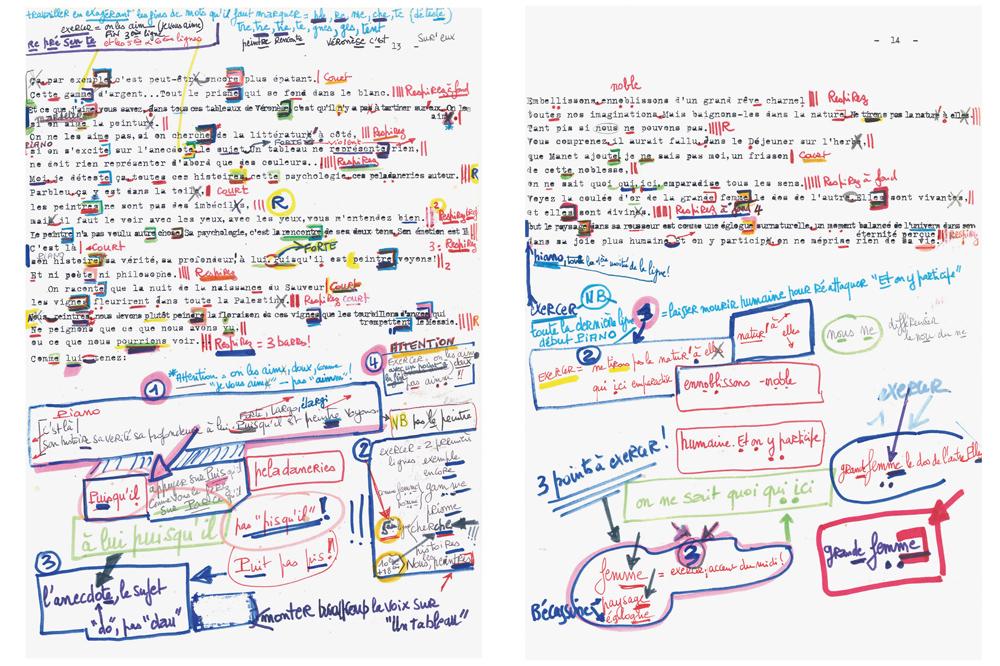 travailler en exagérant les fins de mots qu'il faut marquer = ble, re, me, che, te (déteste)
exercer = on les aim (je vous aime)
tre, tre, tre, te, gnes, gres, tent
FIN 3ème ligne
RE PRÉ SEN TE
et les 5 à 6ème lignes
peintre Ressente
VÉRONÈSE C'EST
13
SUR'EUX
Ça par exemple c'est peut-être encore plus épatant. Court
Cette gamme d'argent...Tout le prisme qui se fond dans le blanc. Respirez à fond
Et ce que j'aime vous savez, dans tous ces tableaux de Véronèse c'est qu'il n'y a pas à tartiner sur eux. On les aim
si on aime la peinture.
On ne les aime pas, si on cherche de la littérature à côté, Respirez
PIANO
FORTE violent
si on s'excite sur l'anecdote le sujet. Un tableau ne représente rien,
ne doit rien représenter d'abord que des couleurs. Respirez
Moi, je déteste ça, toutes ces histoires, cette psychologie, ces peladaneries autour. R
Parbleu, ça y est dans la toile. Court
les peintres ne sont pas des imbéciles, R
mais il faut le voir avec les yeux, avec les yeux, vous m'entendez bien. Respirez
Le peintre n'a pas voulu autre chose. Sa psychologie, c'est la rencontre de ses deux tons. Son émotion est là
FORTE
C'est là Court
3:
PIANO
son histoire, sa vérité, sa profondeur à lui. Puisqu'il est peintre voyons! 2
Et ni poète ni philosophe. Respirez
On raconte que la nuit de la naissance du Sauveur Court
les vignes fleurirent dans toute la Palestine. Respirez court
Nous, peintres, nous devons plutôt peindre la floraison de ces vignes que les tourbillons d'anges qui
trompettent le Messie. R
Ne peignons que ce que nous avons vu.
ou ce que nous pourrions voir. Respirez = 3 barres!
Comme lui, tenez:
1
*Attention = on les aimx, doux, comme
"je vous aimx" — pas "aimm"!
4
ATTENTION
EXERCER = on les aime
pas aimm!!
Piano
C'est là
Forte, Largo, élargi
son histoire sa vérité sa profondeur à lui. Puisqu'il est peintre voyons
NB pas le peintre
Puisqu'il
appuyer sur Puisqu'il
peladaneries
2
exercer = 2 premières
lignes exemple
encore
gamme
prisme
cherche
histoires
Nous, peintres
à lui puisqu'il
pas "pisqu'il"!
Puit pas pis!
3
l'anecdote, le sujet
"dô", pas "dau"
monter beaucoup le voix sur
"Un tableau"
- 14 -
noble
Embellissons, ennoblissons d'un grand rêve charnel Respirez
toutes nos imaginations. Mais baignons-les dans la nature. Ne tirons pas la nature à elles
Tant pis si nous ne pouvons pas. R
Vous comprenez, il aurait fallu, dans le Déjeuner sur l'herbe,
que Manet ajoute, je ne sais pas moi, un frisson Court
de cette noblesse,
on ne sait quoi qui ici emparadise tous les sens. Respirez à fond
Voyez la coulée d'or de la grande femme, le dos de l'autre. Elles sont vivantes.
et elles sont divines. Respirez à fond 4
Tout le paysage dans sa rousseur est comme une églogue surnaturelle, un moment balancé de l'univers dans son
éternité perçue
dans sa joie plus humaine. Et on y participe, on ne méprise rien de sa vie. Respirez
piano, toute la 1ère moitié de la ligne!
EXERCER NB
toute la dernière ligne
début PIANO
1 = laisser mourir humaine pour réattaquer "Et on y participe"
2
EXERCER = ne tirons pas la natur' à elles
qui ici emparadise
natur' à
elles
nous ne
différencier
le nou du ne
ennoblissons -noble
humaine. Et on y participe
exercer
1
grande femme le dos de l'autre Elles
3 points à exercer!
on ne sait quoi qui ici
3
femme = exercer, accent du midi!
paysage
églogue
Bécassine
grande femme